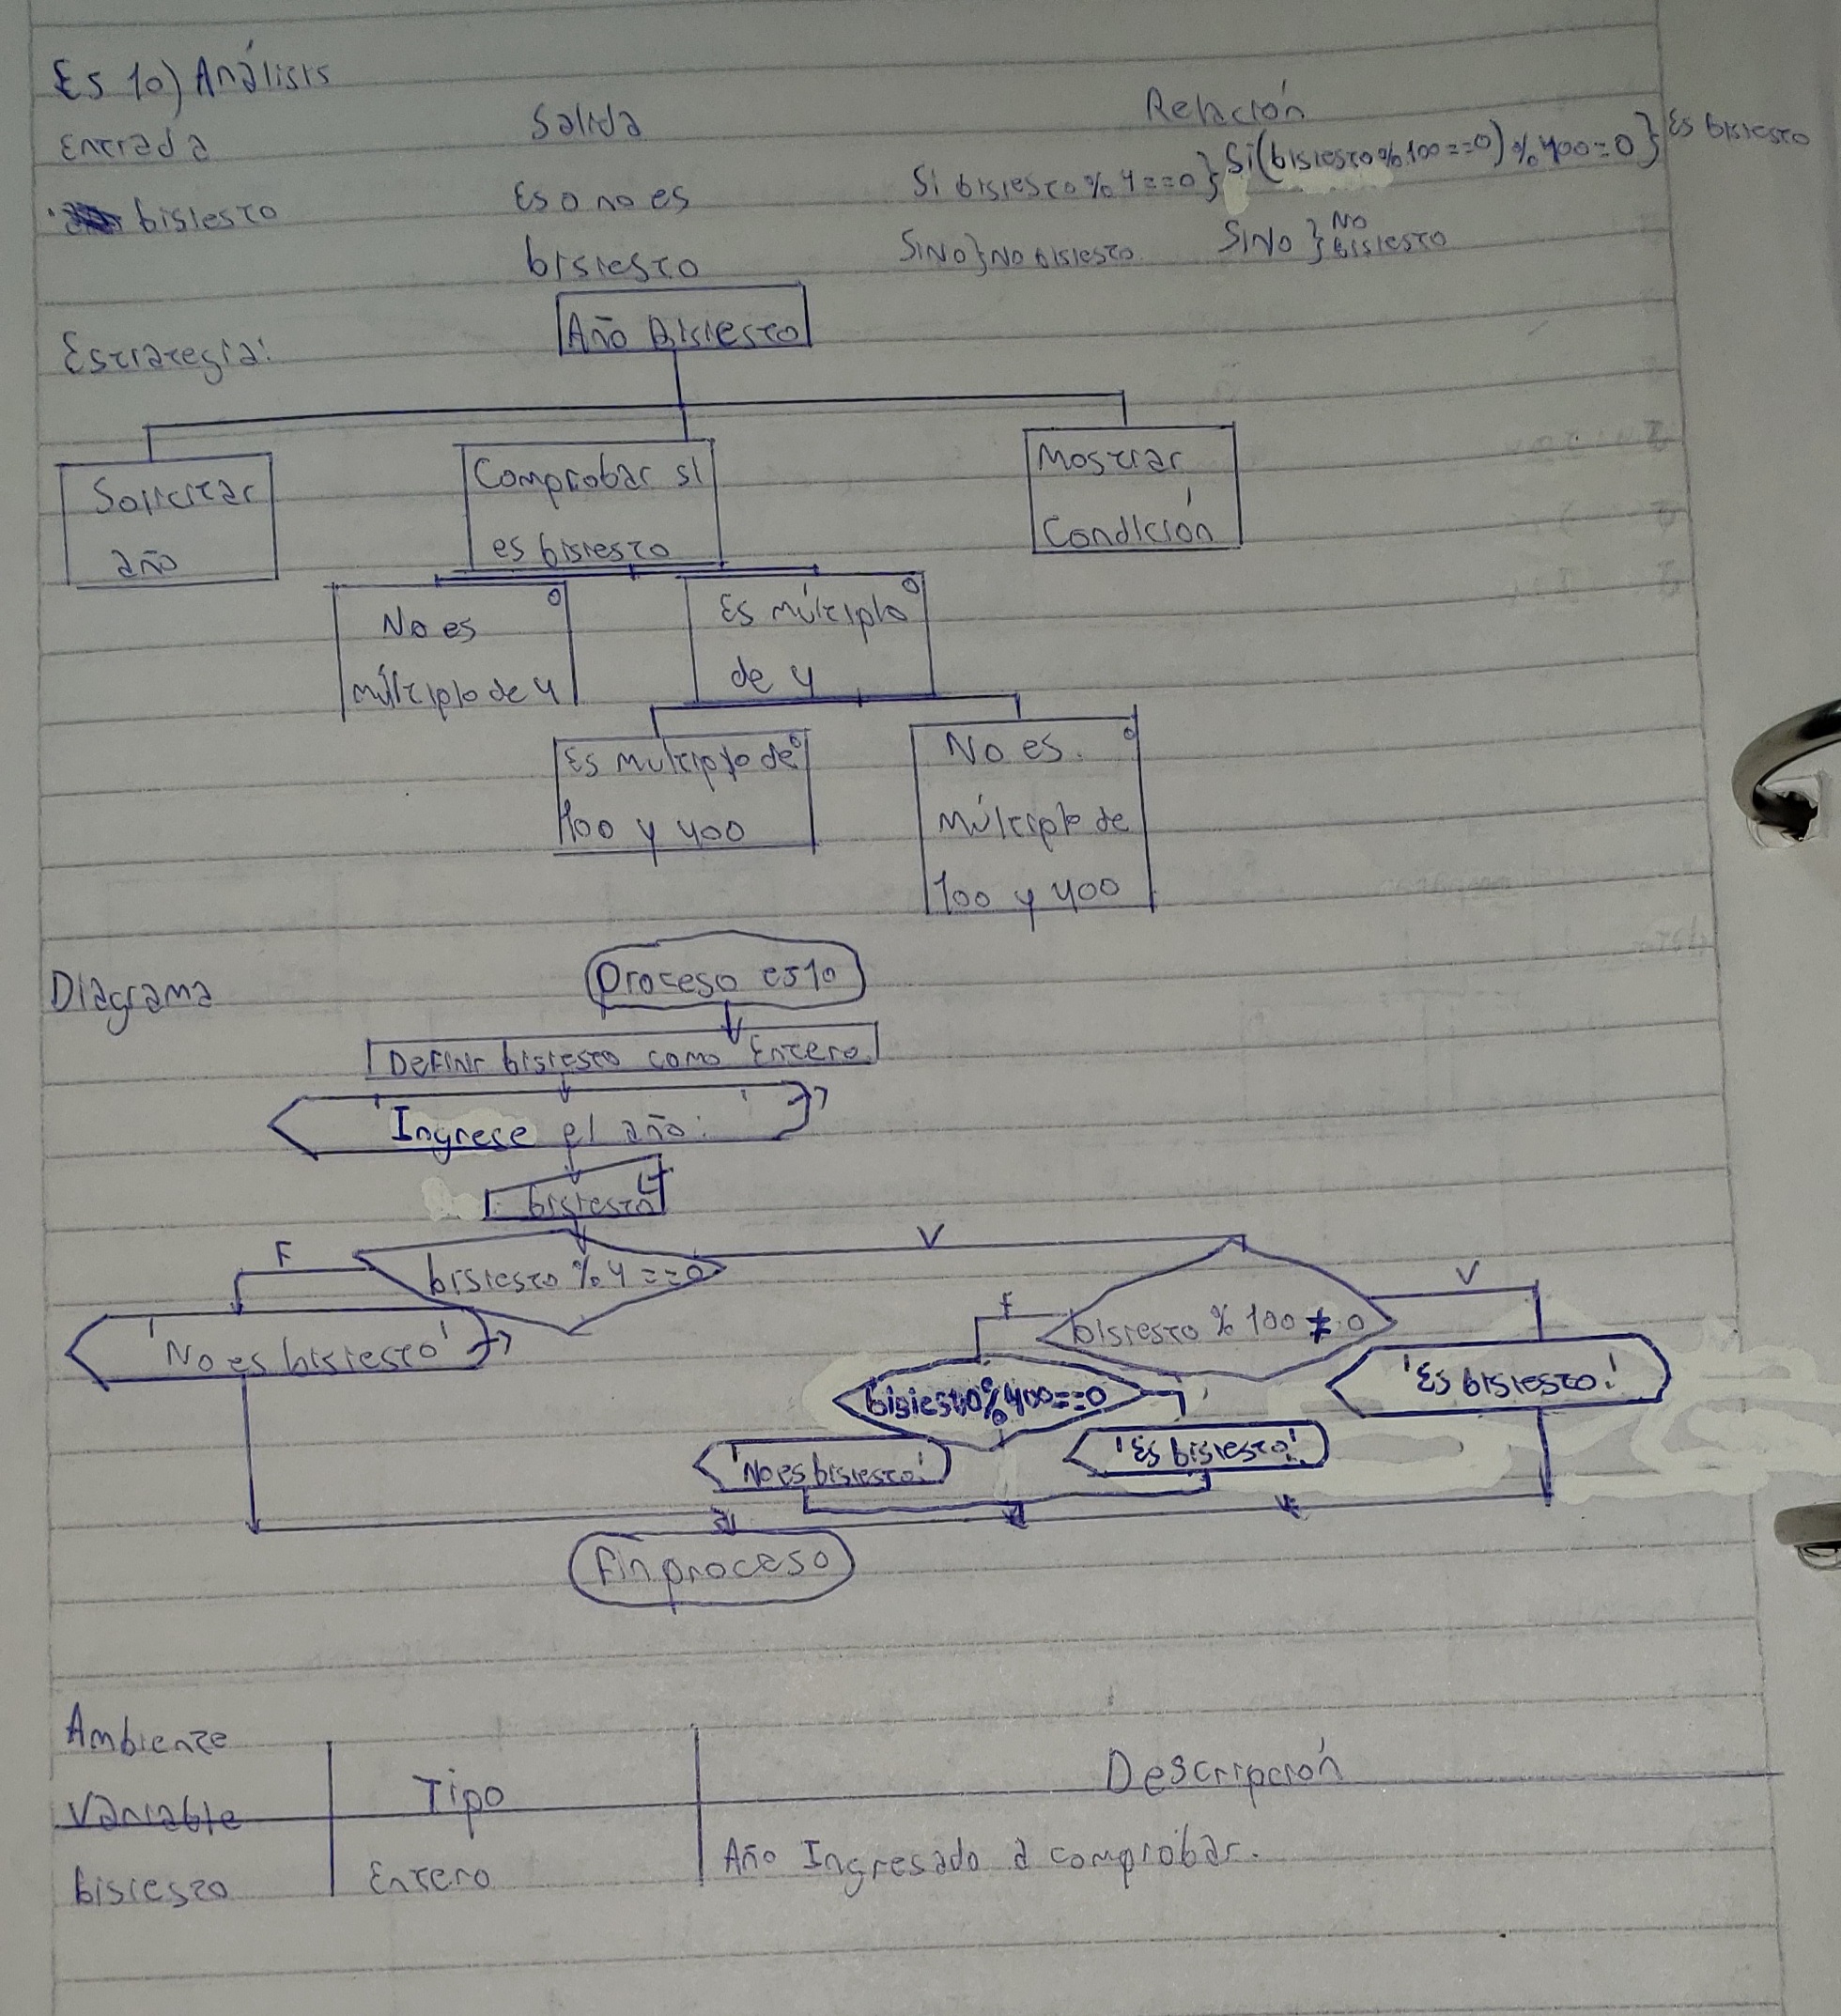 Es 10) Análisis
Entrada
Salida
Relación
bisiesto
Es o no es
bisiesto
Si bisiesto % 4 == 0 } Si (bisiesto % 100 == 0) % 400 = 0 } Es bisiesto
SiNo } No bisiesto
SiNo } No
bisiesto
Estrategia:
Año Bisiesto
Solicitar
año
Comprobar si
es bisiesto
Mostrar
Condición
No es
múltiplo de 4
Es múltiplo
de 4
Es multiplo de
100 y 400
No es
múltiplo de
100 y 400
Diagrama
Proceso es10
Definir bisiesto como Entero
'Ingrese el año:'
bisiesto
F
bisiesto % 4 == 0
V
'No es bisiesto'
f
bisiesto % 100 ≠ 0
V
bisiesto % 400 == 0
'Es bisiesto'
'No es bisiesto'
'Es bisiesto'
Finproceso
Ambiente
Variable
Tipo
Descripción
bisiesto
Entero
Año Ingresado a comprobar.